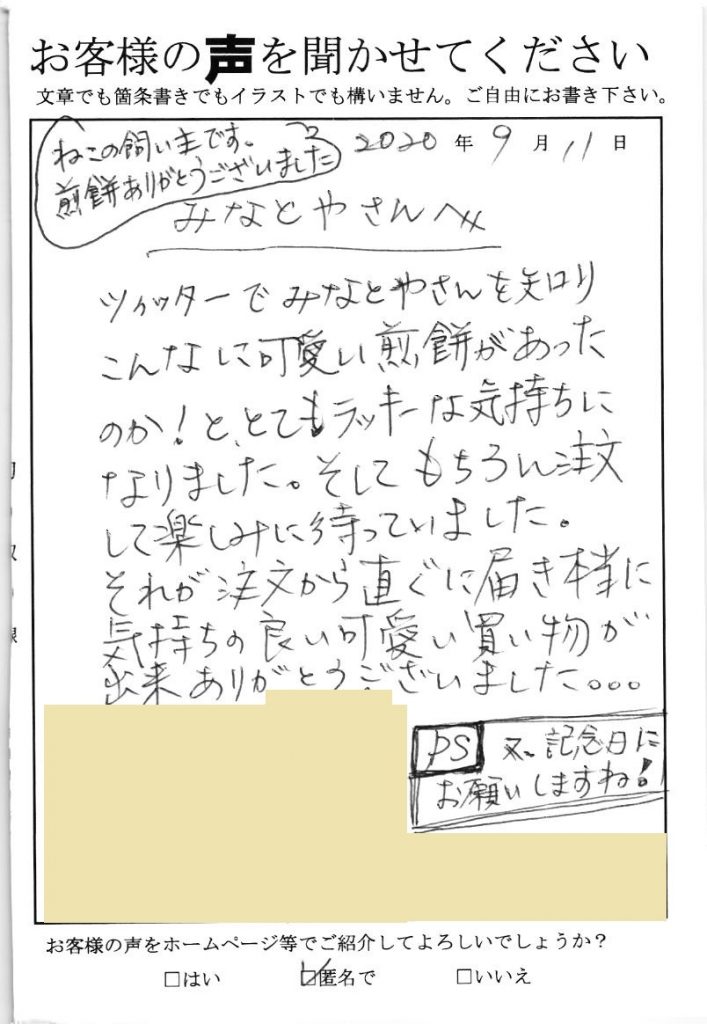 お客様の声を聞かせてください
文章でも箇条書きでもイラストでも構いません。ご自由にお書き下さい。
2020年9月11日
ねこの飼い主です。
煎餅ありがとうございました
みなとやさんへ
ツイッターでみなとやさんを知り
こんなに可愛い煎餅があった
のか!と、とてもラッキーな気持ちに
なりました。そしてもちろん注文
して楽しみに待っていました。
それが注文から直ぐに届き本当に
気持ちの良い可愛い買い物が
出来ありがとうございました。。。
PS 又、記念日に
お願いしますね!
お客様の声をホームページ等でご紹介してよろしいでしょうか?
□はい ☑匿名で □いいえ